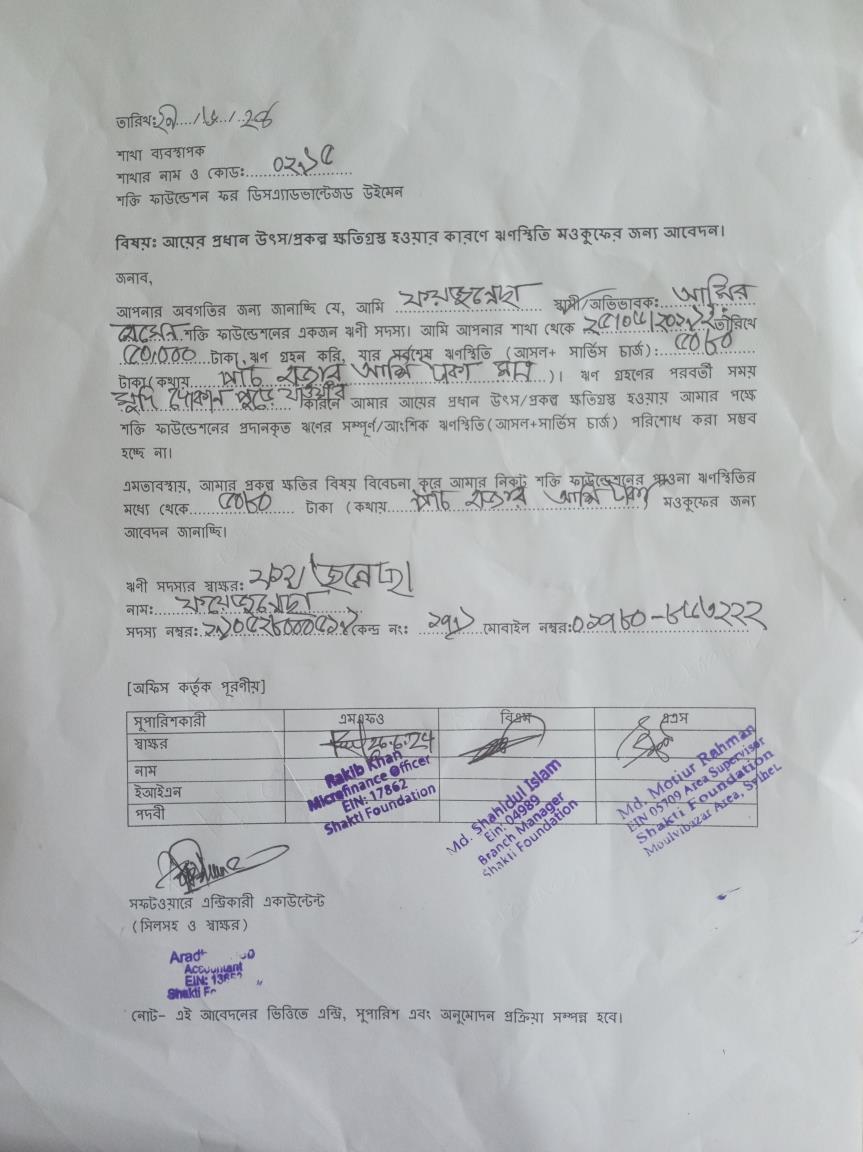 তারিখ: ২৯/৬/২৪
শাখা ব্যবস্থাপক
শাখার নাম ও কোড: ০২১৫
শক্তি ফাউন্ডেশন ফর ডিসএ্যাডভান্টেজড উইমেন
বিষয়: আয়ের প্রধান উৎস/প্রকল্প ক্ষতিগ্রস্থ হওয়ার কারণে ঋণস্থিতি মওকুফের জন্য আবেদন।
জনাব,
আপনার অবগতির জন্য জানাচ্ছি যে, আমি স্বামী/অভিভাবক: আমির
হোসেন শক্তি ফাউন্ডেশনের একজন ঋনী সদস্য। আমি আপনার শাখা থেকে তারিখে
৫০,০০০ টাকা ঋণ গ্রহন করি, যার সর্বশেষ ঋণস্থিতি (আসল+ সার্ভিস চার্জ): ৫০৮০
টাকা(কথায় পাঁচ হাজার আশি টাকা মাত্র)। ঋণ গ্রহণের পরবর্তী সময়
মুদি দোকান পুড়ে যাওয়ার কারনে আমার আয়ের প্রধান উৎস/প্রকল্প ক্ষতিগ্রস্থ হওয়ায় আমার পক্ষে
শক্তি ফাউন্ডেশনের প্রদানকৃত ঋণের সম্পূর্ণ/আংশিক ঋণস্থিতি(আসল+সার্ভিস চার্জ) পরিশোধ করা সম্ভব
হচ্ছে না।
এমতাবস্থায়, আমার প্রকল্প ক্ষতির বিষয় বিবেচনা করে আমার নিকট শক্তি ফাউন্ডেশনের পাওনা ঋণস্থিতির
মধ্যে থেকে ৫০৮০ টাকা (কথায় পাঁচ হাজার আশি টাকা মওকুফের জন্য
আবেদন জানাচ্ছি।
ঋনী সদস্যর স্বাক্ষর:
নাম:
সদস্য নম্বর: কেন্দ্র নং: মোবাইল নম্বর:
[অফিস কর্তৃক পূরনীয়]
সুপারিশকারী এমএফও বিএম এএস
স্বাক্ষর 26.6.24
নাম
ইআইএন
পদবী
Rakib Khan
Microfinance Officer
EIN: 17862
Shakti Foundation
Md. Shahidul Islam
Ein: 04989
Branch Manager
Shakti Foundation
Md. Motiur Rahman
EIN 05709 Area Supervisor
Shakti Foundation
Moulvibazar Area, Sylhet
সফটওয়ারে এন্ট্রিকারী একাউন্টেন্ট
(সিলসহ ও স্বাক্ষর)
Accountant
EIN:
Shakti
নোট- এই আবেদনের ভিত্তিতে এন্ট্রি, সুপারিশ এবং অনুমোদন প্রক্রিয়া সম্পন্ন হবে।